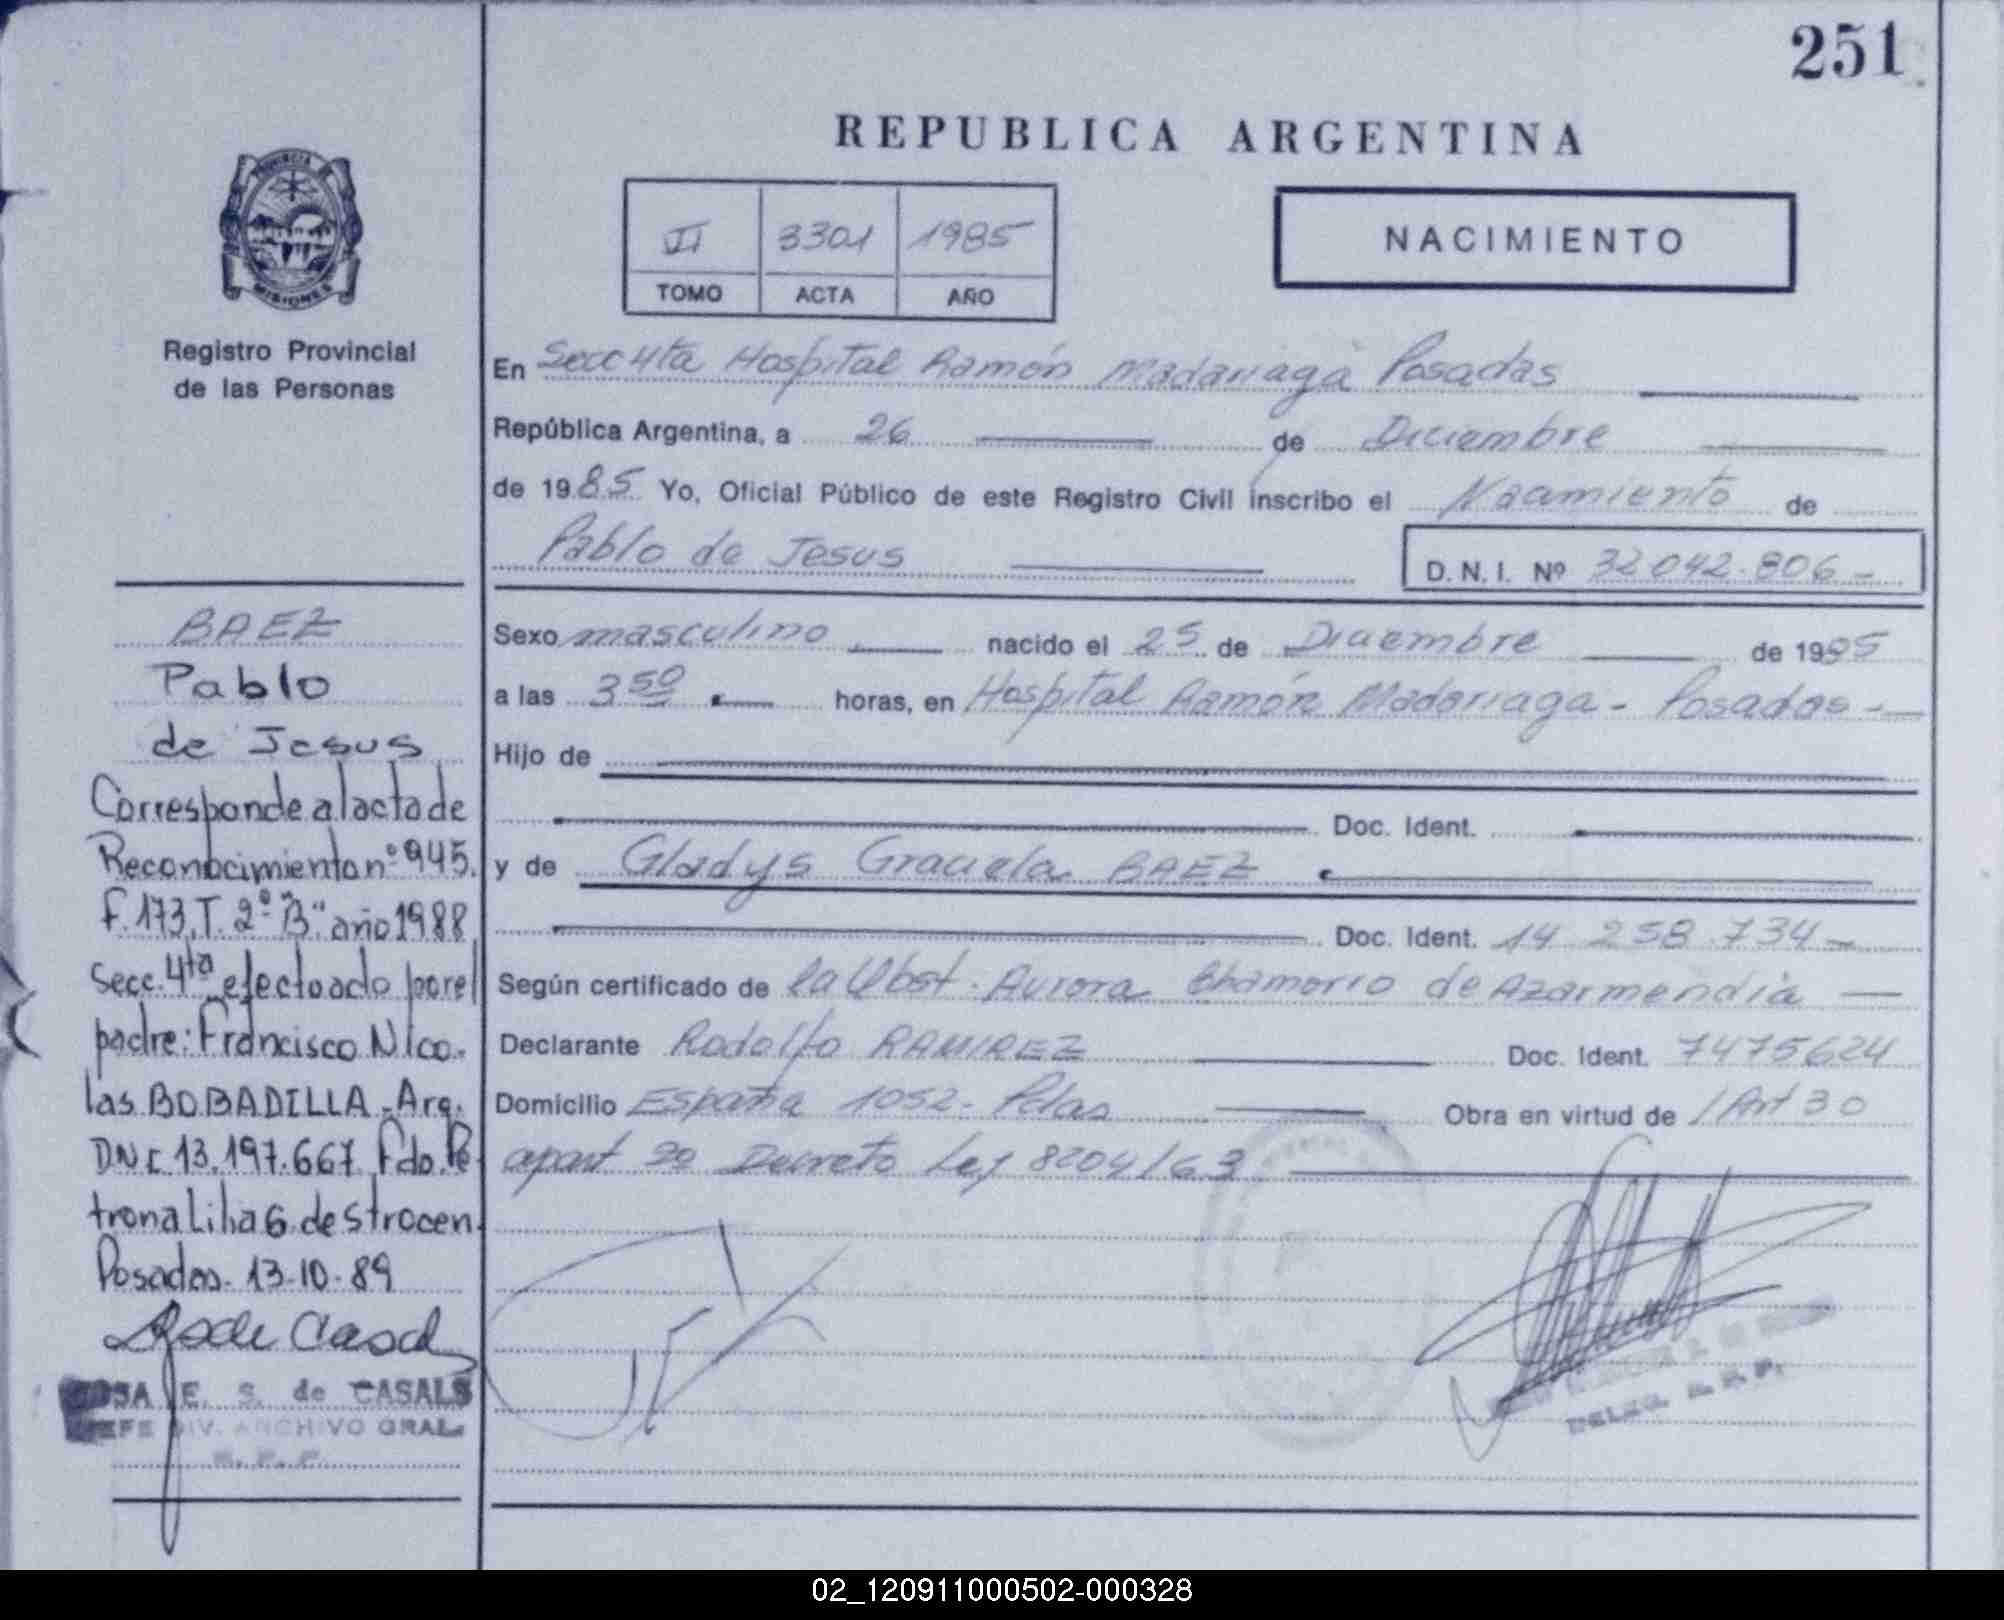 251
REPUBLICA ARGENTINA
PROVINCIA
MISIONES
Registro Provincial
de las Personas
II 3301 1985
TOMO ACTA AÑO
NACIMIENTO
En Secc 4ta Hospital Ramón Madariaga Posadas
República Argentina, a 26 de Diciembre
de 1985 Yo, Oficial Público de este Registro Civil inscribo el Nacimiento de
Pablo de Jesus D.N.I. Nº 32 042.806-
Sexo masculino nacido el 25 de Diciembre de 1985
a las 3 50 horas, en Hospital Ramón Madariaga - Posadas -
Hijo de
Doc. Ident.
y de Gladys Graciela BAEZ
Doc. Ident. 14 258.734-
Según certificado de la Obst. Aurora Chamorro de Azarmendia
Declarante Rodolfo RAMIREZ Doc. Ident. 7475624
Domicilio España 1052- Pdas Obra en virtud de /Art 30
apart 2º Decreto Ley 8204/63
DELEG. R.P.P.
BAEZ
Pablo
de Jesus
Corresponde al acta de
Reconocimiento nº 945.
F. 173. T. 2º "B" año 1988
Secc. 4ta efectoado por el
padre: Francisco Nico-
las BOBADILLA - Arg.
DNI 13.197.667. Fdo. Pe
trona Lilia G. de Strocen.
Posadas. 13-10-89
ROSA E. S. de CASALS
JEFE DIV. ARCHIVO GRAL.
R. P. P.
02_120911000502-000328